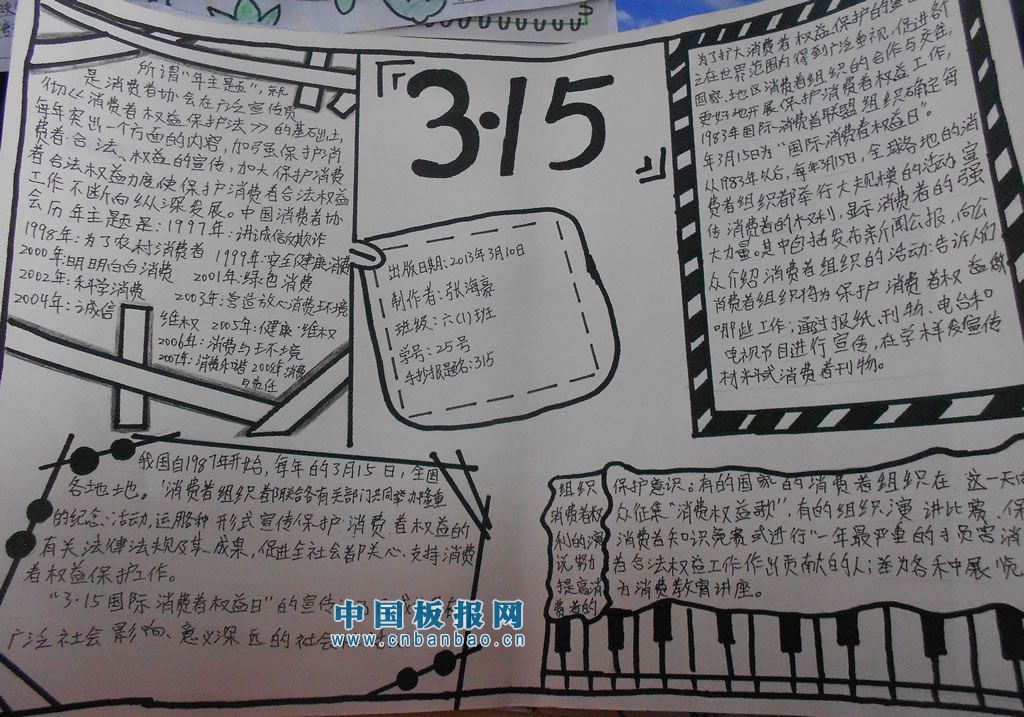 『3·15』
所谓“年主题”,就
是消费者协会在广泛宣传贯
彻《消费者权益保护法》的基础上,
每年突出一个方面的内容,加强保护消
费者合法、权益的宣传,加大保护消费
者合法权益力度使保护消费者合法权益
工作不断向纵深发展。中国消费者协
会历年主题是:1997年:讲诚信反欺诈
1998年:为了农村消费者 1999年:安全健康消费
2000年明明白白消费 2001年:绿色消费
2002年:科学消费 2003年:营造放心消费环境
2004年:诚信 维权 2005年:健康·维权
2006年:消费与环境
2007年:消费和谐 2008年:消费
与责任
出版日期:2013年3月10日
制作者:张海豪
班级:六(1)班
学号:25号
手抄报题名:315
为了扩大消费者权益保护的宣
之在世界范围内得到广泛重视,促进各
国家、地区消费者组织的合作与交往,
更好地开展保护消费者权益工作,
1983年国际消费者联盟组织确定每
年3月15日为“国际消费者权益日”。
从1983年以后,每年3月15日,全球各地的消
费者组织都举行大规模的活动宣
传消费者的权利,显示消费者的强
大力量。其中包括发布新闻公报,向公
众介绍消费者组织的活动:告诉人们
消费者组织将为保护消费者权益做
哪些工作;通过报纸、刊物、电台和
电视节目进行宣传,在学样发宣传
材料或消费者刊物。
我国自1987年开始,每年的3月15日,全国
各地地。消费者组织都联合各有关部门共同举办隆重
的纪念活动,运用各种形式宣传保护消费者权益的
有关法律法规及其成果,促进全社会都关心、支持消费
者权益保护工作。
“3·15国际消费者权益日”的宣传
广泛社会影响、意义深远的社会
组织
消费者权
利的演
说努力
提高消
费者的
保护意识;有的国家的消费者组织在这一天向
众征集“消费权益歌”,有的组织演讲比赛、保
消费者知识竞赛或进行一年最严重的损害消
者合法权益工作作出贡献的人;举为各种展览
为消费教育讲座。
中国板报网
www.cnbanbao.cn